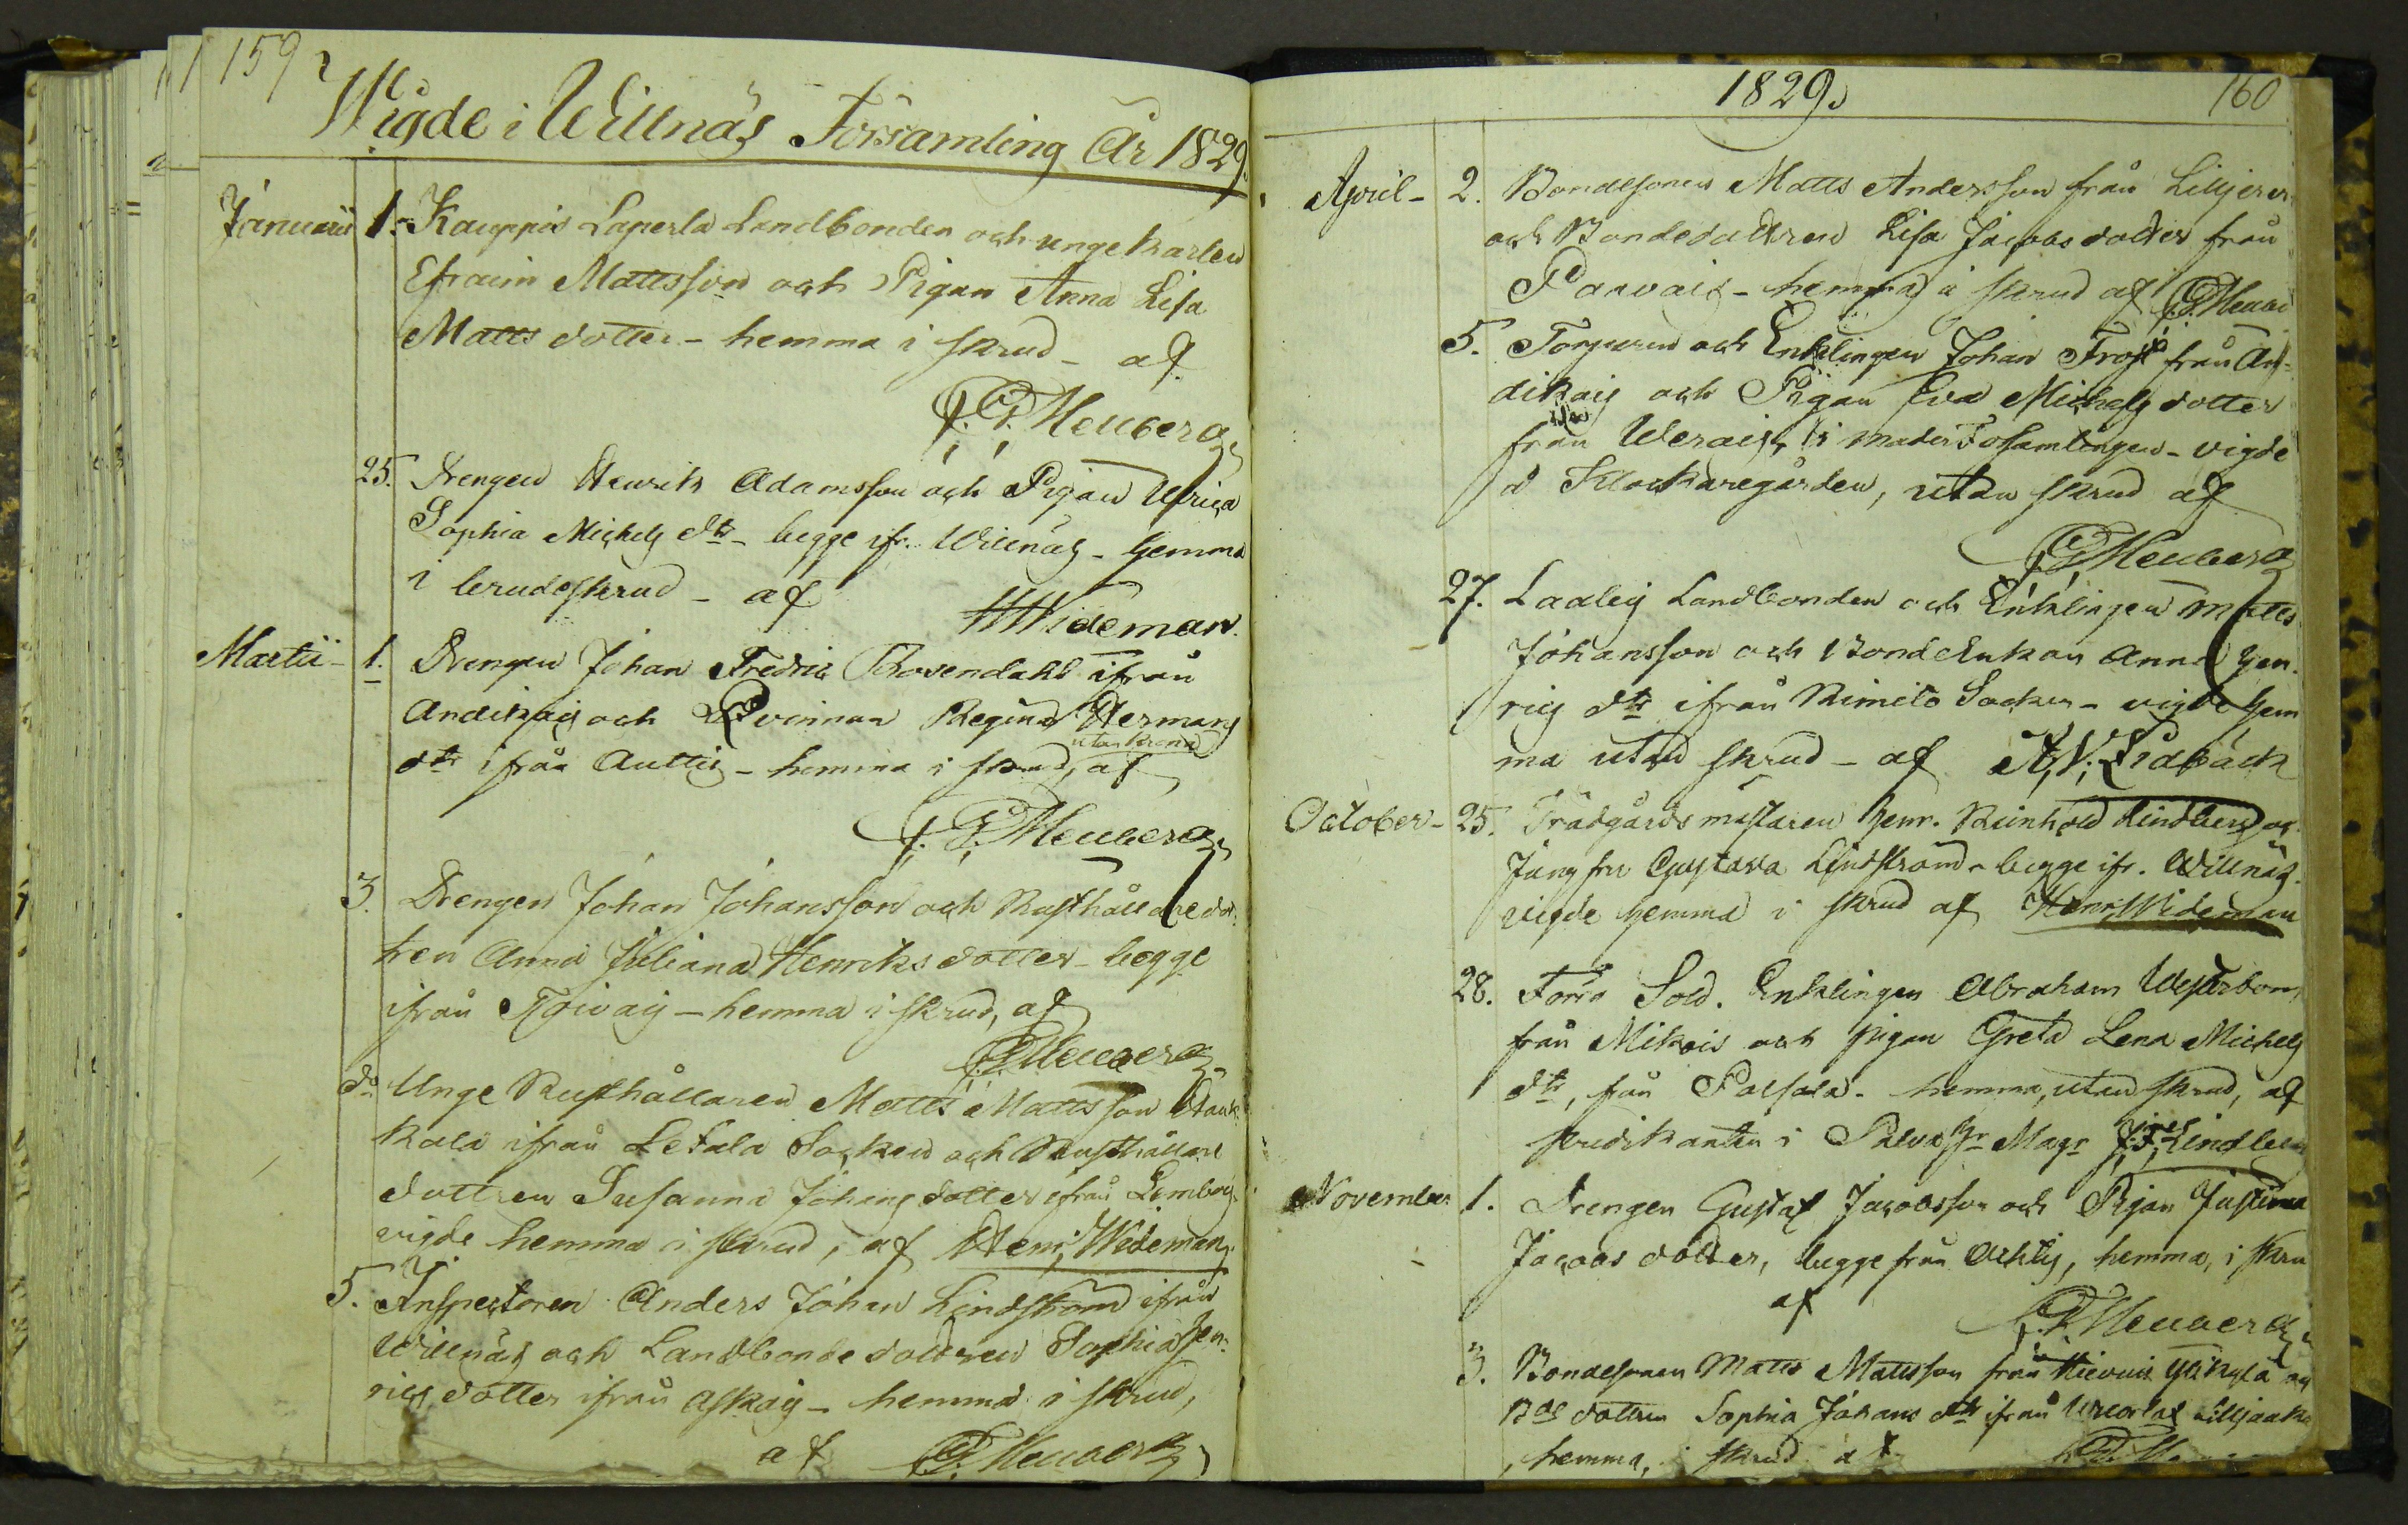 159
Wigde i Willnäs Församling År 1829.
Januarii 1. Kauppis Laperla Landbonden och unge karlen
Efraim Mattsson och Pigan Anna Lisa
Matts dotter - hemma i skrud - af
25. Drengen Henrik Adamsson och Pigan Ulrica
Sophia Michels dtr - begge ifr. Willnäs - hemma
i brudeskrud - af
H Wideman.
Martii - 1. Drengen Johan Fredric Rosendahl ifrån
Andikais och Qvinnan Regina Hermans
utan krona
dtr ifrån Auttis - hemma i skrud, af
3. Drengen Johan Johansson och Rusthållaredot-
tren Anna Juliana Henriks dotter - begge
ifrån - hemma i skrud, af
do Unge Rusthållaren Matts Mattsson
kala ifrån Letala Socken och Rusthållare
dottren Susanna Johans dotter ifrån
vigde hemma i skrud, af Henr. Wideman.
5. Inspectoren Anders Johan Lindström ifrån
Willnäs och Landbonde dottren Sophia Hen-
rics dotter ifrån Askais - hemma i skrud,
af
1829.
160
April - 2. Bondesonen Matts Andersson från
och Bondedottren Lisa Jacobs dotter från
Parvais - hemma i skrud af
5. Torparen och Enklingen Johan Frost från An-
dikais och Pigan Eva Michels dotter
från Werais, i moder Församlingen - vigde
i Klockaregården, utan skrud af
27. Laaleis Landbonden och Enklingen Matts
Johansson och Bonde Enkan Anna Hen-
rics dtr ifrån Rimito Socken - vigde hem
ma utan skrud - af A. W. Lidbäck
October - 25. Trädgårdsmästaren Henr. Reinhold Lindberg oc
Jungfru Gustava Lindström - begge ifr. Willnäs.
vigde hemma i skrud af Henr. Wideman
28. Förra Sold. Enklingen Abraham Westerbom
från Mikois och pigan Greta Lena Michels
dtr, från Palsala - hemma, utan skrud, af
predikanten i Hr Magr Lindbe
November 1. Drengen Gustaf Jacobsson och Pigan Justina
Jacobs dotter, begge från Achtis, hemma, i skru
af
3. Bondesonen Matts Mattsson från Ylikylä oc
Bde dottren Sophia Johans dtr ifrån
hemma, i skrud af